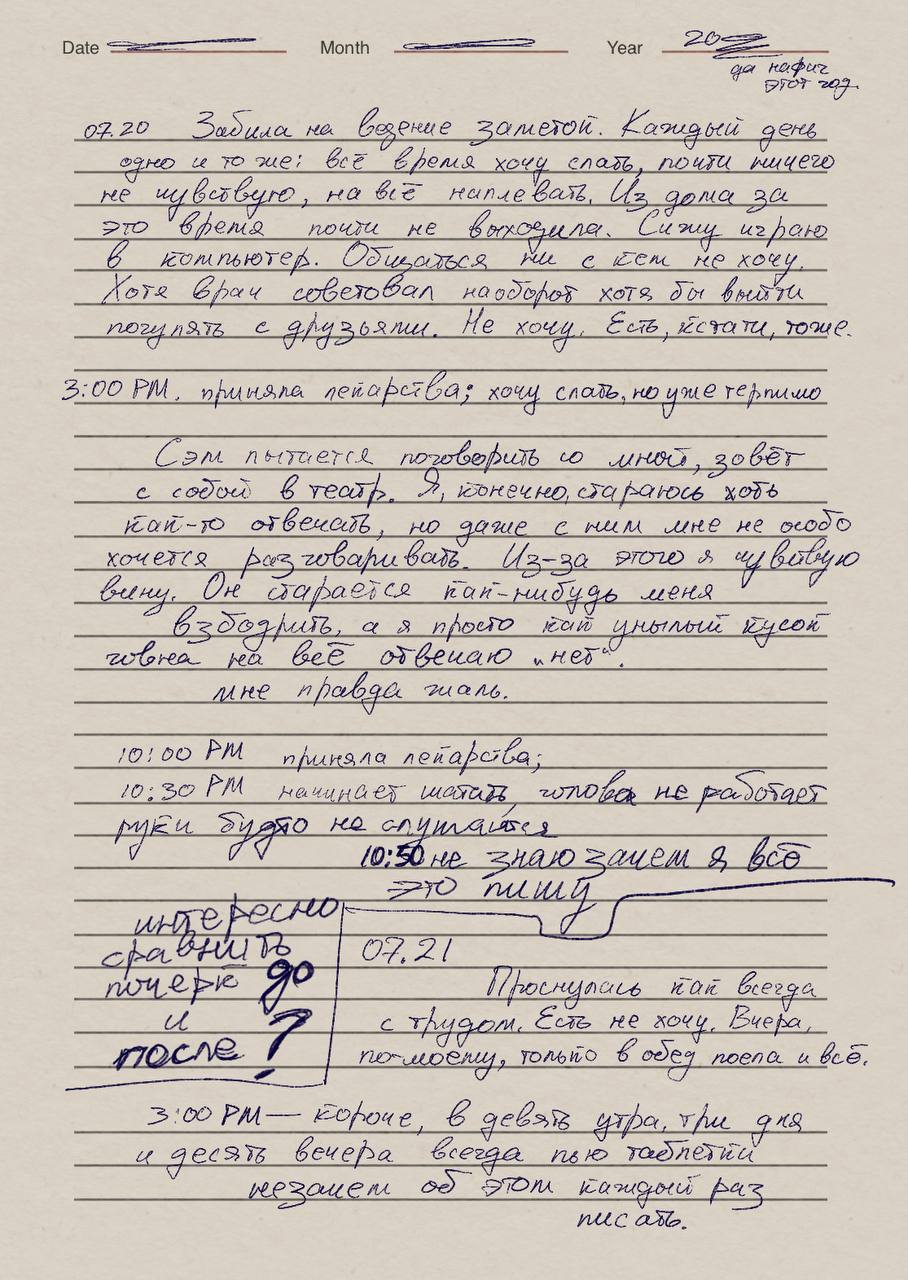 Date Month Year 20
да нафиг
этот год.
07.20 Забила на ведение заметой. Каждый день
одно и то же: всё время хочу спать, почти ничего
не чувствую, на всё наплевать. Из дома за
это время почти не выходила. Сижу играю
в компьютер. Общаться ни с кем не хочу.
Хотя врач советовал наоборот хотя бы выйти
погулять с друзьями. Не хочу. Есть, кстати, тоже.
3:00 PM. приняла лекарства; хочу спать, но уже терпимо
Сэм пытается поговорить со мной, зовёт
с собой в театр. Я, конечно, стараюсь хоть
как-то отвечать, но даже с ним мне не особо
хочется разговаривать. Из-за этого я чувствую
вину. Он старается как-нибудь меня
взбодрить, а я просто как унылый кусок
говна на всё отвечаю „нет“.
мне правда жаль.
10:00 PM приняла лекарства;
10:30 PM начинает шатать, голова не работает
руки будто не слушаются
10:50 не знаю зачем я всё
это пишу
интересно
сравнить
почерк до
и
после ?
07.21
Проснулась как всегда
с трудом. Есть не хочу. Вчера,
по-моему, только в обед поела и всё.
3:00 PM — короче, в девять утра, три дня
и десять вечера всегда пью таблетки
незачем об этом каждый раз
писать.